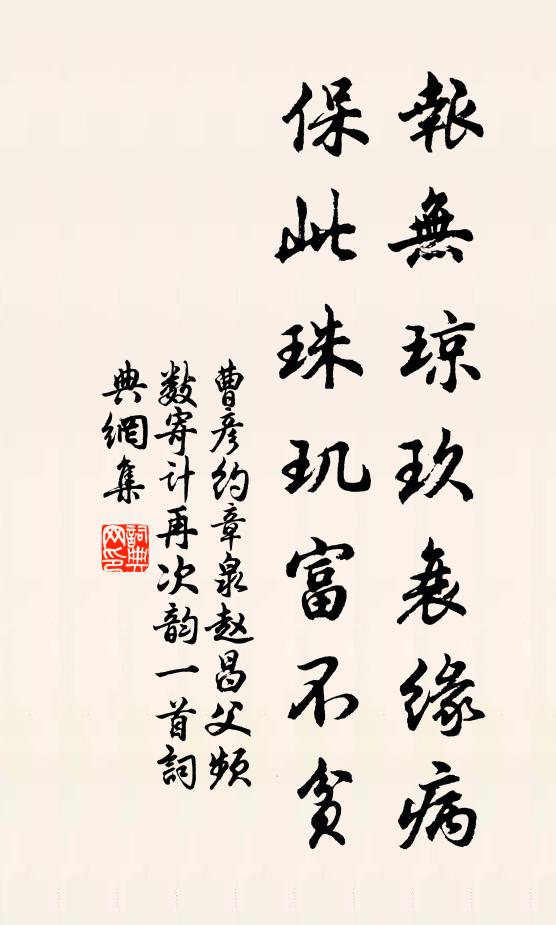 報無瓊玖衰緣病
保此珠玑富不貧
曹彦約章泉赵昌父频
數寄计再次韵一首詞
典網集
詞典
网印